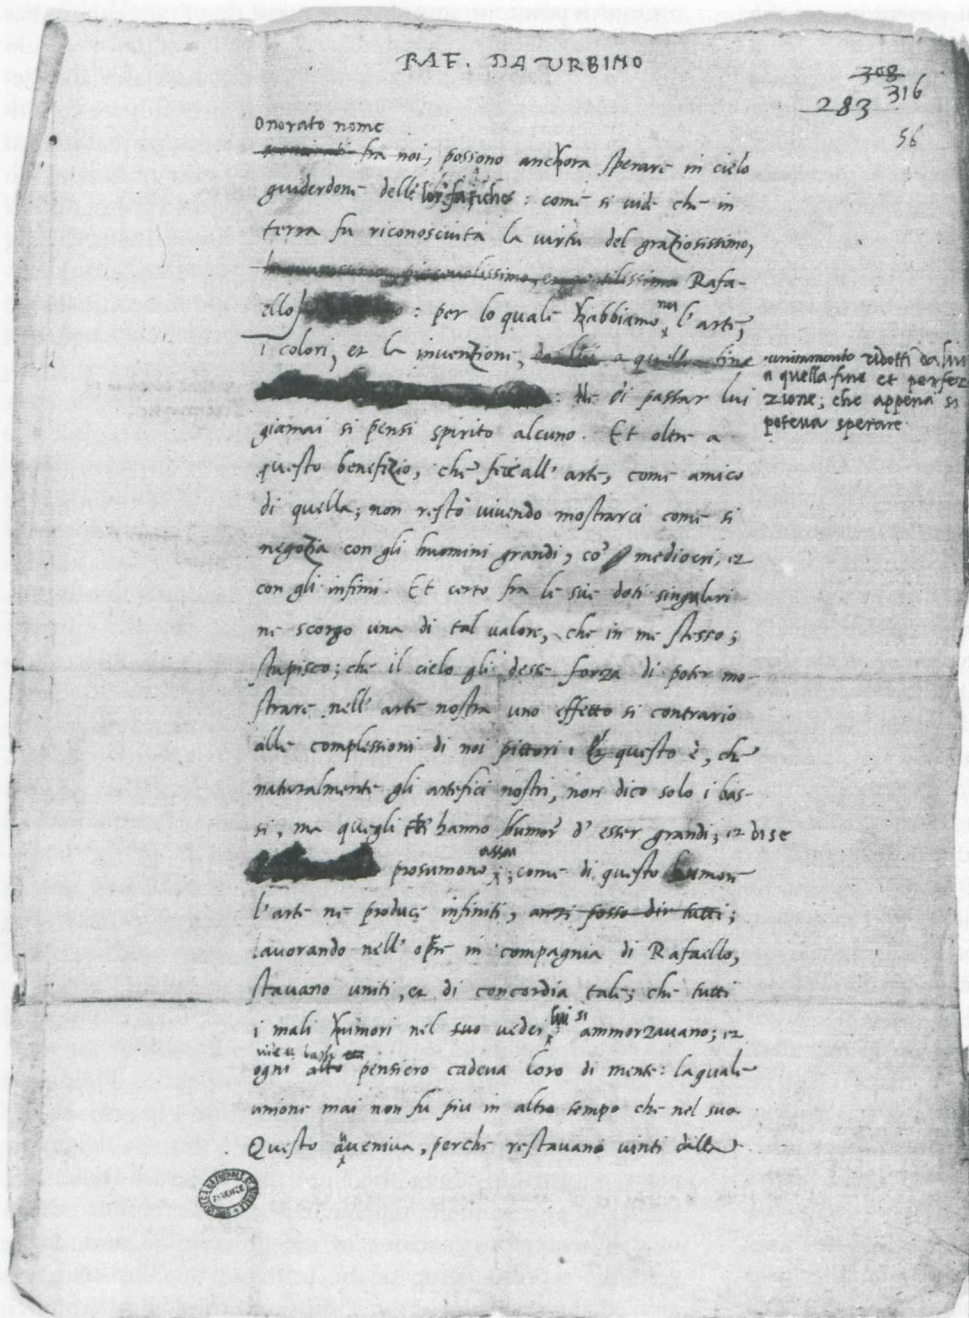 RAF. DA URBINO
308
316
283
56
onorato nome
fra noi, possono anchora sperare in cielo
guiderdone delle lor fatiche: come si vide che in
terra fu riconosciuta la virtu del graziosissimo,
piacevolissimo, e gentilissimo Rafa-
ello: per lo quale habbiamo noi l'arte,
i colori, et la invenzione, da lui a quella fine
unitamente ridotti da lui
a quella fine et perfez
zione; che appena si
poteva sperare
: Ne di passar lui
giamai si pensi spirito alcuno. Et oltre a
questo benefizio, che fece all'arte, come amico
di quella; non restò vivendo mostrarci come si
negozia con gli huomini grandi, co' mediocri, et
con gli infimi. Et certo fra le sue doti singulari
ne scorgo una di tal valore, che in me stesso;
stupisco; che il cielo gli desse forza di poter mo-
strare nell'arte nostra uno effetto si contrario
alle complessioni di noi pittori: Et questo è, che
naturalmente gli artefici nostri, non dico solo i bas-
si, ma quegli che hanno humor d'esser grandi; et di se
prosumono assai; come di questo humore
l'arte ne produce infiniti, anzi posso dir tutti;
lavorando nell'opre in compagnia di Rafaello,
stavano uniti, et di concordia tale; che tutti
i mali humori nel veder lui si ammorzavano; et
ogni vile et basso pensiero cadeva loro di mente: la quale
unione mai non fu piu in altro tempo che nel suo
Questo aveniva, perche restavano vinti dalla
FIRENZE